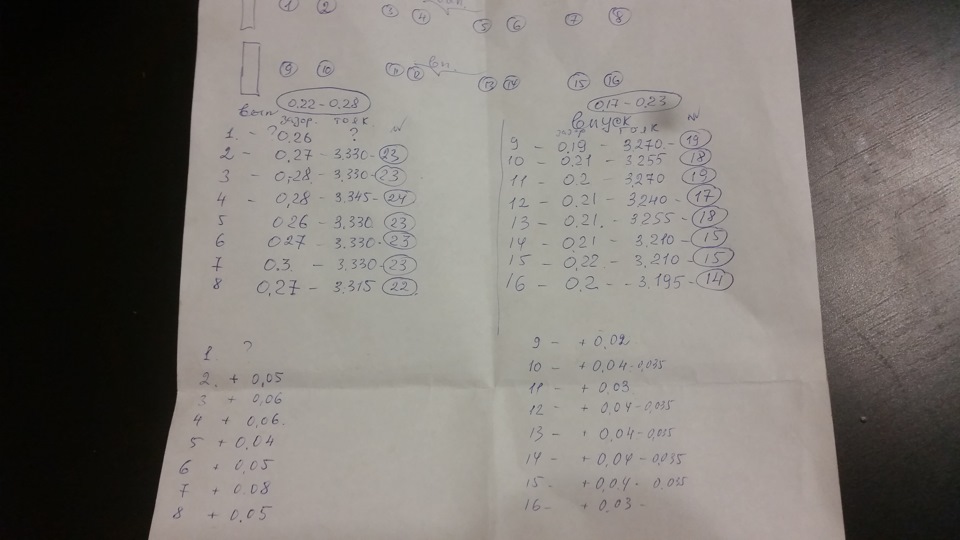 1 2 3 4 5 6 7 8
вп.
9 10 11 12 13 14 15 16
0,22-0,28
вып зазор. толк №
1. - ? 0.26 ?
2 - 0,27 - 3.330 - 23
3 - 0,28 - 3.330 - 23
4 - 0,28 - 3.345 - 24
5 0.26 - 3.330 23
6 0.27 - 3.330 - 23
7 0.3. - 3.330 - 23
8 0,27 - 3.315 22
0,17-0,23
впуск №
зазр толк
9 - 0.19 - 3.270 - 19
10 - 0.21 - 3255 18
11 - 0.2 - 3,270 19
12 - 0.21 - 3,240 - 17
13 - 0.21. - 3255 - 18
14 - 0,21 - 3,210 - 15
15 - 0,22 - 3,210 - 15
16 - 0.2 - - 3.195 - 14
1. ?
2. + 0,05
3 + 0,06
4 + 0,06.
5 + 0.04
6 + 0,05
7 + 0.08
8 + 0.05
9 - + 0.02
10 - + 0,04 - 0,035
11 - + 0.03
12 - + 0,04 - 0,035
13 - + 0,04 - 0,035
14 - + 0,04 - 0,035
15. + 0,04 - 0.035
16 - + 0,03 -